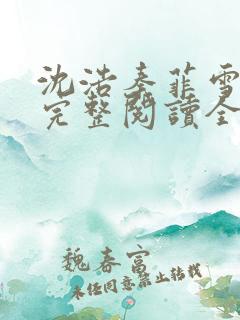 沈浩秦菲雪
完整閱讀全
魏春富
未经同意禁止转载